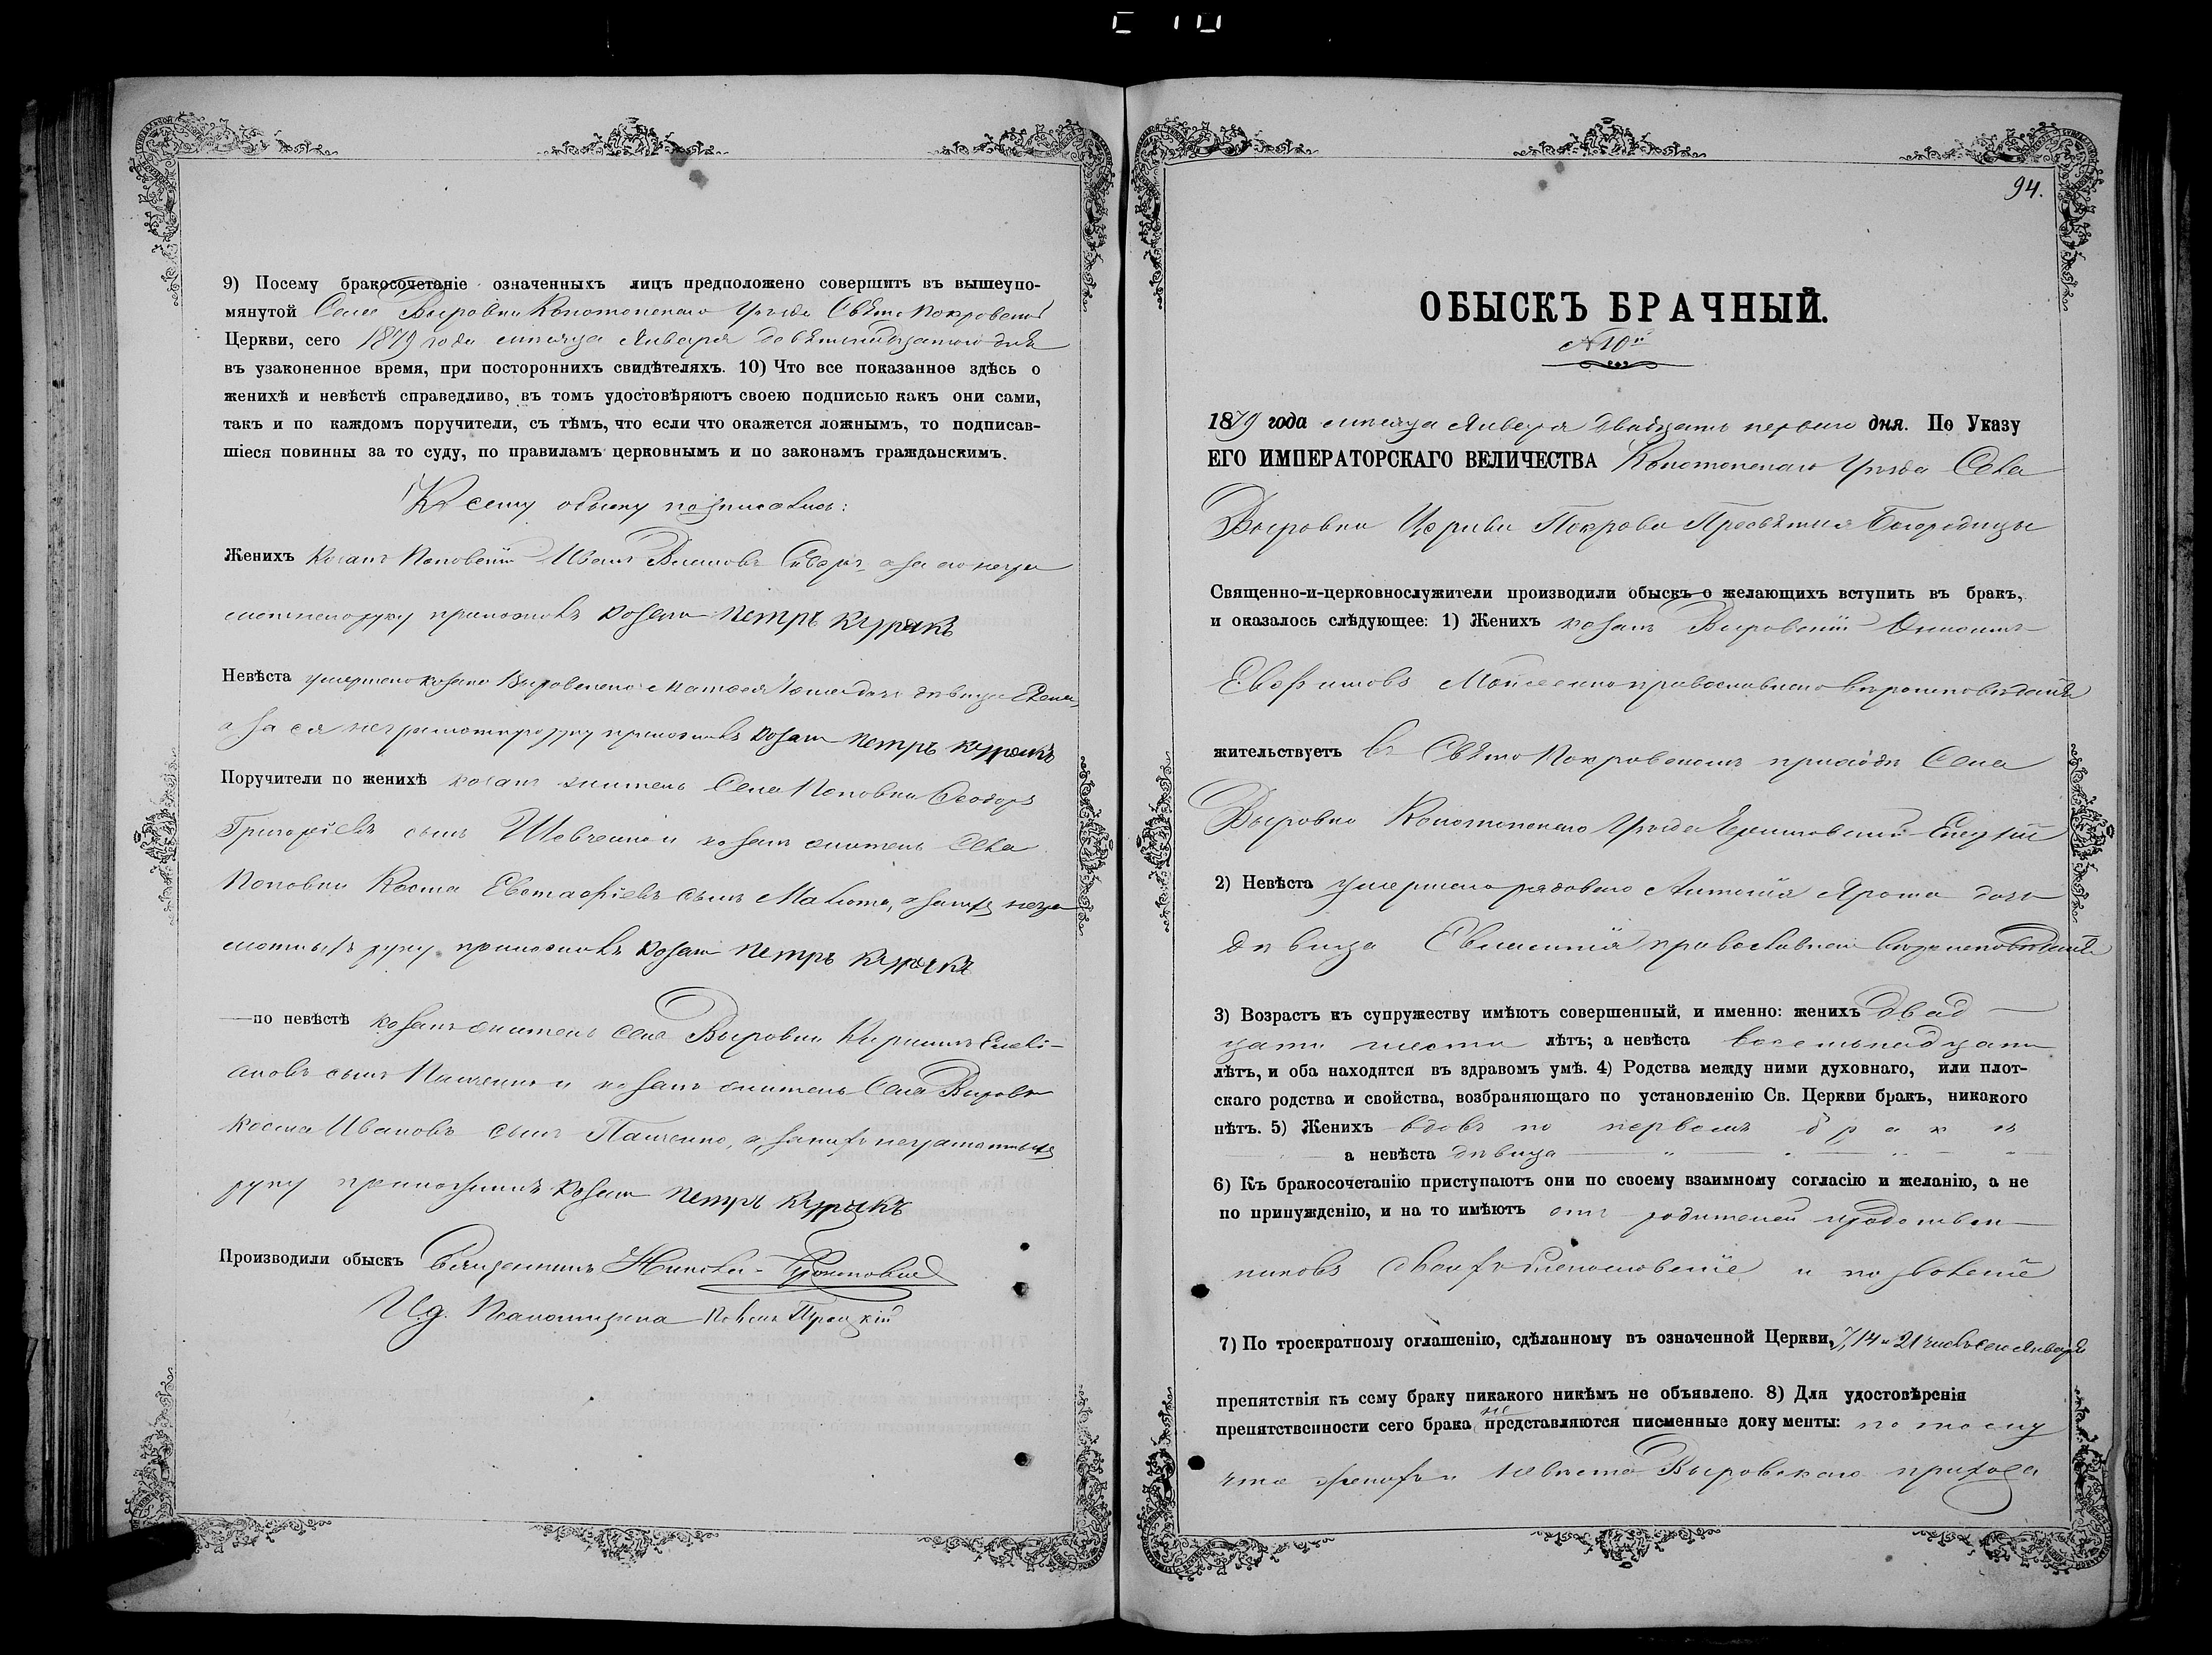 9) Посему бракосочетаніе означенныхъ лицъ предположено совершить въ вышеупо-
мянутой Села Выровки Конотопскаго Уѣзда Свято Покровской
Церкви, сего 1879 года мѣсяца Января девятнадцатого дня
въ узаконенное время, при постороннихъ свидѣтеляхъ. 10) Что все показанное здѣсь о
женихѣ и невѣстѣ справедливо, въ томъ удостовѣряютъ своею подписью какъ они сами,
такъ и по каждомъ поручители, съ тѣмъ, что если что окажется ложнымъ, то подписав-
шіеся повинны за то суду, по правиламъ церковнымъ и по законамъ гражданскимъ.
К сему обыску подписались:
Женихъ козакъ Поповскій Иванъ а за его негра
мотнего руку приложилъ козакъ Петръ Курракъ
Невѣста умершего козака Выровского дочь дѣвица Елена,
а за ея неграмотную руку приложилъ козакъ Петръ Курракъ
Поручители по женихѣ козакъ житель Села Поповки Ѳеодоръ
Григоріевъ сынъ Шевченко и козакъ житель Села
Поповки Косма Евстафіевъ сынъ Малюта, а за нихъ негра
мотныхъ руку приложилъ козакъ Петръ Курракъ
—по невѣстѣ козакъ житель села Выровки Кириллъ Емелі-
ановъ сынъ и козакъ житель Села Выровки
Косма Ивановъ сынъ Пащенко, а за нихъ неграмотныхъ
руку приложилъ козакъ Петръ Курракъ
Производили обыскъ Священникъ
И.д. Псаломщика Павелъ Троцкій
94.
ОБЫСКЪ БРАЧНЫЙ.
№ 10й
1879 года мѣсяца Января двадцать перваго дня. По Указу
ЕГО ИМПЕРАТОРСКАГО ВЕЛИЧЕСТВА Конотопскаго Уѣзда Села
Выровки Церкви Покрова Пресвятыя Богородицы
Священно-и-церковнослужители производили обыскъ о желающихъ вступить въ бракъ,
и оказалось слѣдующее: 1) Женихъ козакъ Выровскій
Евфимовъ Мойсеенко православного вѣроисповѣданія
жительствуетъ въ Свято Покровскомъ приходѣ Села
Выровки Конотопскаго Уѣзда Черниговской Епархіи
2) Невѣста умершего рядового Антонія Яроша дочь
дѣвица православного вѣроисповѣданія
3) Возрастъ къ супружеству имѣютъ совершенный, и именно: женихъ двад
цати шести лѣтъ; а невѣста восемьнадцати
лѣтъ, и оба находятся въ здравомъ умѣ. 4) Родства между ними духовнаго, или плот-
скаго родства и свойства, возбраняющаго по установленію Св. Церкви бракъ, никакого
нѣтъ. 5) Женихъ вдовъ по первомъ бракѣ
а невѣста дѣвица
6) Къ бракосочетанію приступаютъ они по своему взаимному согласію и желанію, а не
по принужденію, и на то имѣютъ отъ родителей и родствен
никовъ своихъ благословеніе и позволеніе
7) По троекратному оглашенію, сдѣланному въ означенной Церкви, 7, 14 и 21 числъ сего Января
препятствія къ сему браку никакого никѣмъ не объявлено. 8) Для удостовѣренія
препятственности сего брака не представляются писменные документы: потому
что женихъ и невѣста Выровского прихода